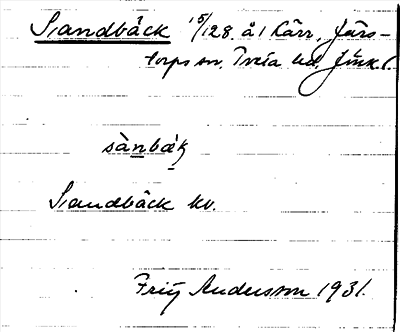 Sandbäck 15/128 å 1 Kärr, Järs-
torps sn, Tveta hd. Jönk. l.
sànbæk
Sandbäck kv.
Fritz Andersson 1931.